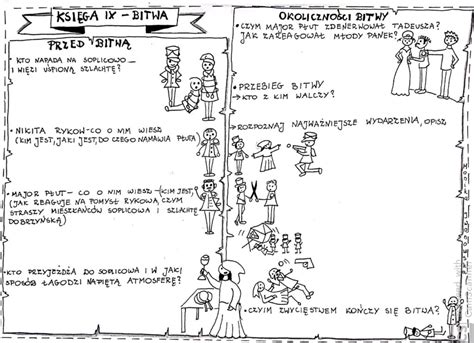 KSIĘGA IX - BITWA
PRZED BITWĄ
• KTO NAPADA NA SOPLICOWO
I WIĘZI UŚPIONĄ SZLACHTĘ?
• NIKITA RYKOW - CO O NIM WIESZ
(KIM JEST, JAKI JEST, DO CZEGO NAMAWIA PŁUTA)
• MAJOR PŁUT - CO O NIM WIESZ - (KIM JEST,
(JAK REAGUJE NA POMYSŁ RYKOWA, CZYM
STRASZY MIESZKAŃCÓW SOPLICOWA I SZLACHTĘ
DOBRZYŃSKĄ)
• KTO PRZYJEŻDŻA DO SOPLICOWA I W JAKI
SPOSÓB ŁAGODZI NAPIĘTĄ ATMOSFERĘ?
OKOLICZNOŚCI BITWY
• CZYM MAJOR PŁUT ZDENERWOWAŁ TADEUSZA?
JAK ZAREAGOWAŁ MŁODY PANEK?
• PRZEBIEG BITWY
→ KTO Z KIM WALCZY?
→ ROZPOZNAJ NAJWAŻNIEJSZE WYDARZENIA, OPISZ
• CZYIM ZWYCIĘSTWEM KOŃCZY SIĘ BITWA?